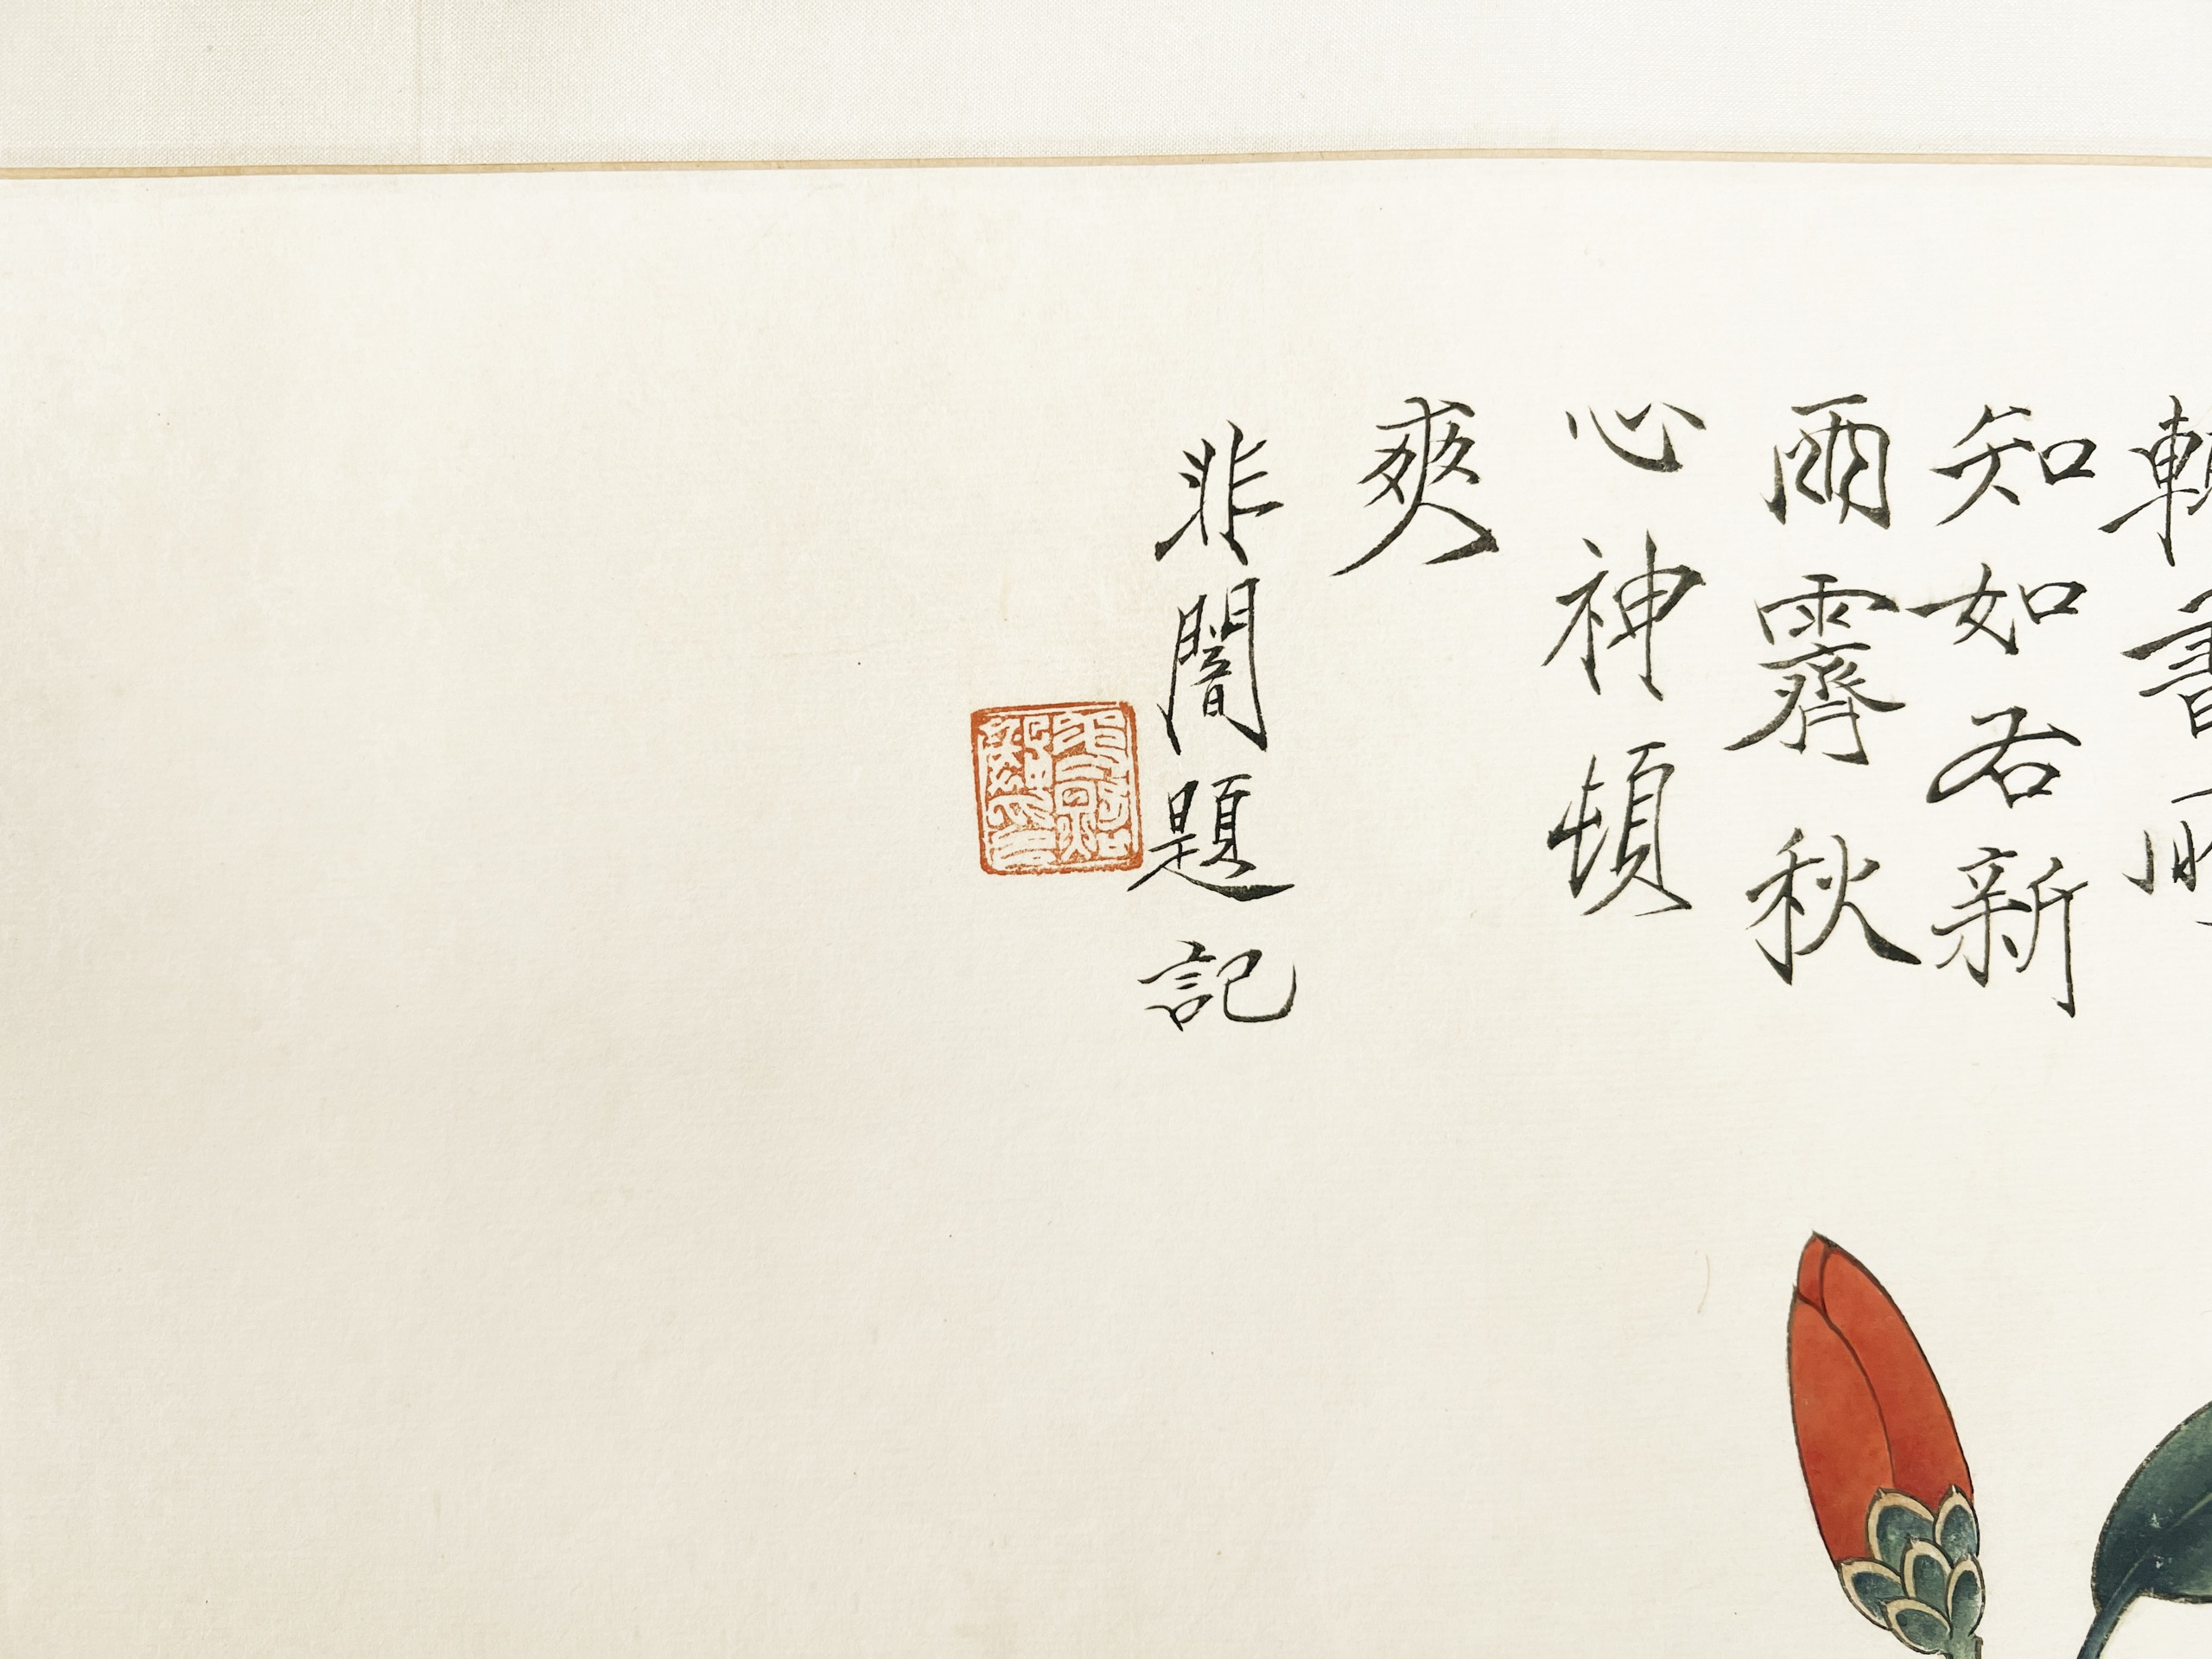 知如右新
雨霽秋
心神頓
爽
非闇題記